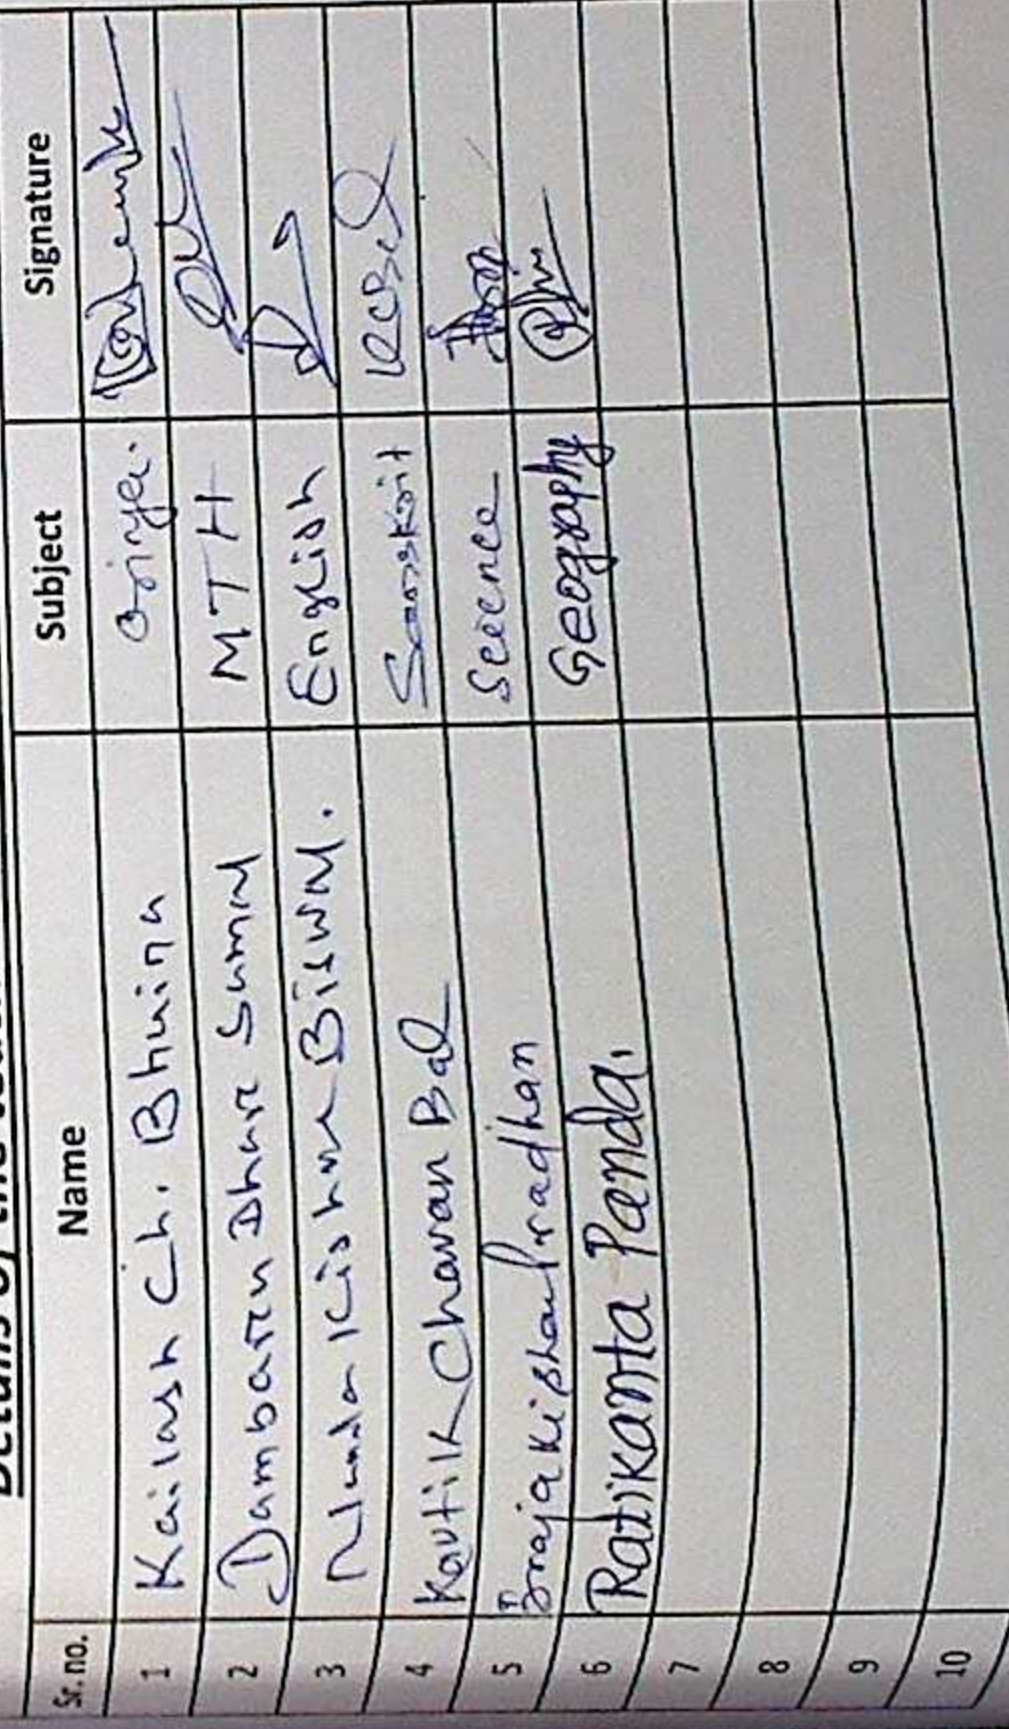 Details of the
Sr. no. Name Subject Signature
1 Kailash Ch. Bhuina Oriya.
2 Dambaru Dhar Samal MTH
3 Nanda Kishor Biswal. English
4 Kartik Charan Bal Sanskrit KCBal
5 Braja Kishor Pradhan Science
6 Ratikanta Panda. Geography
7
8
9
10